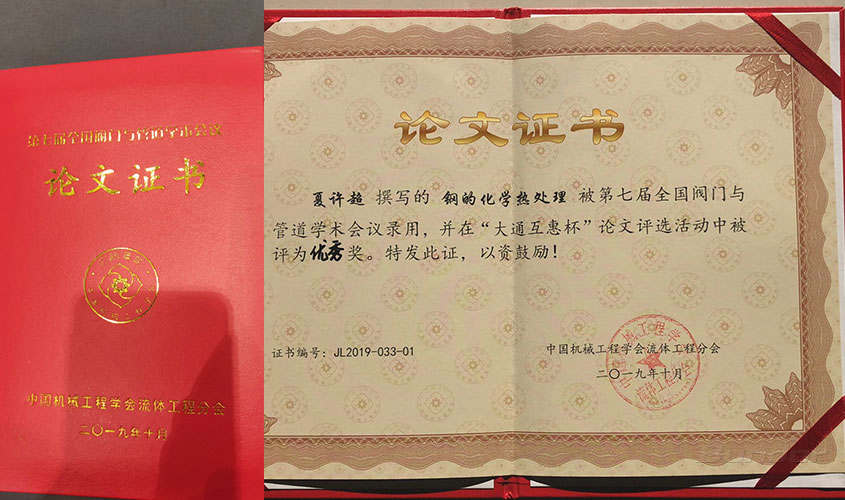 第七届全国阀门与管道学术会议
论文证书
中国机械工程学会流体工程分会
二〇一九年十月
论文证书
夏许超 撰写的 钢的化学热处理 被第七届全国阀门与
管道学术会议录用，并在“大通互惠杯”论文评选活动中被
评为优秀奖。特发此证，以资鼓励！
证书编号：JL2019-033-01
中国机械工程学会流体工程分会
二〇一九年十月